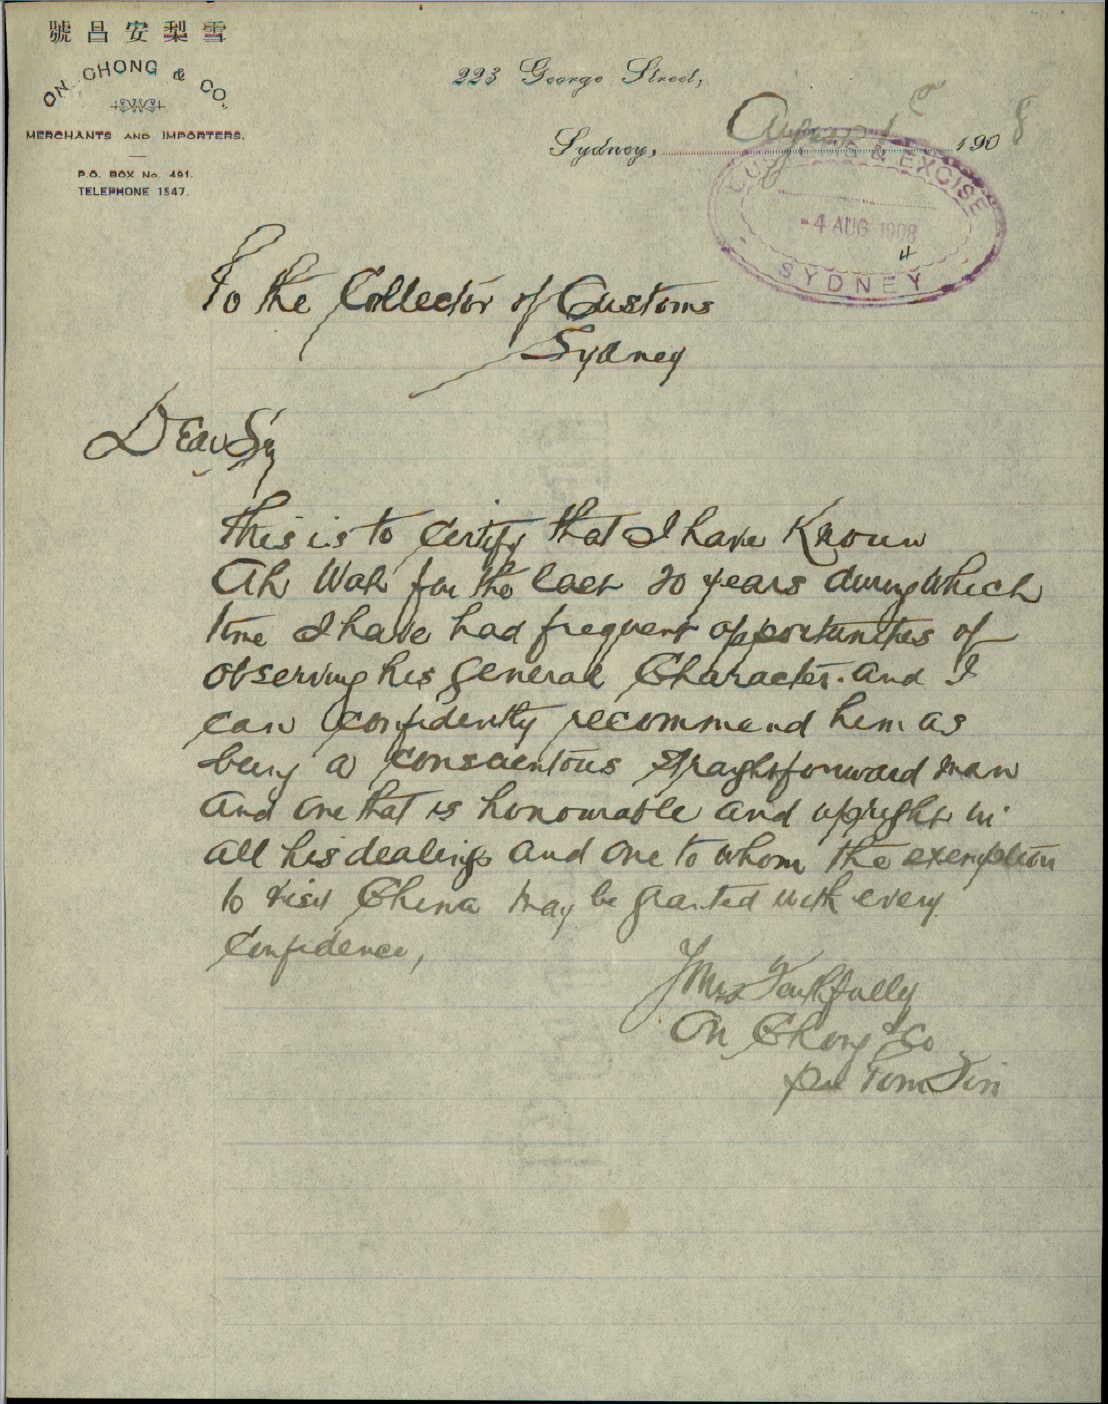 號昌安梨雪
ON CHONG & CO.
MERCHANTS AND IMPORTERS.
P.O. BOX No. 491.
TELEPHONE 1547.
223 George Street,
Sydney, August 190 8
CUSTOMS & EXCISE
-4 AUG 1908
4
SYDNEY
To the Collector of Customs
Sydney
Dear Sir
This is to certify that I have Known
Ah Wah for the last 20 years during which
time I have had frequent opportunities of
observing his general Character. and I
can confidently recommend him as
being a conscientous straightforward man
and one that is honourable and upright in
all his dealings and one to whom the exemption
to visit China may be granted with every
Confidence,
Yours Faithfully
On Chong & Co
per Tom